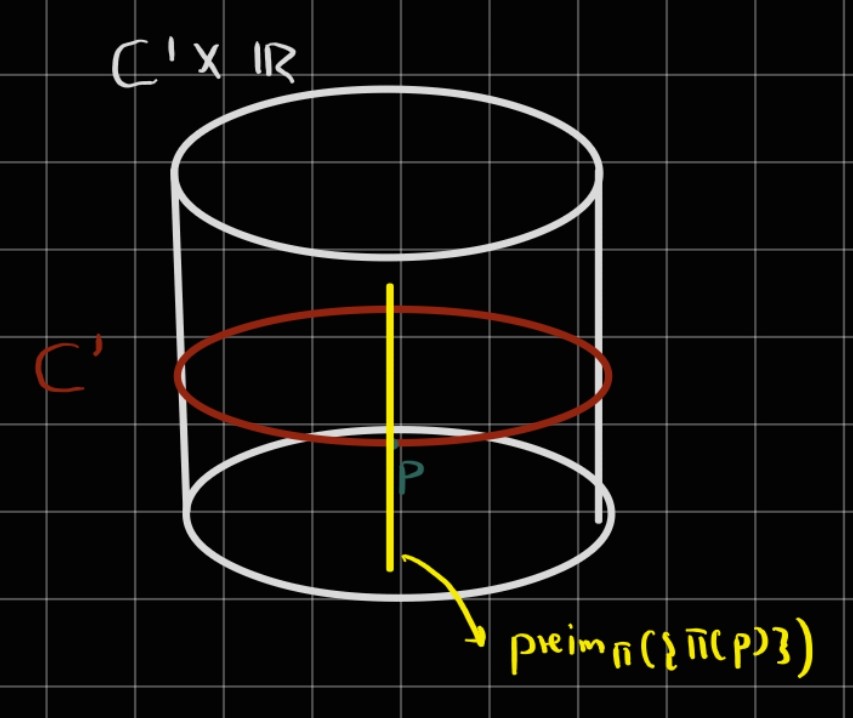 C' X ℝ
C'
P
preim π({π(p)})